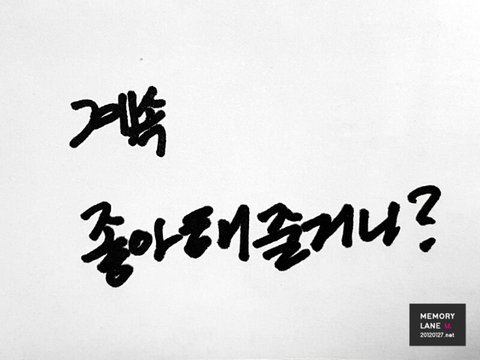 계속
좋아해줄거니?
MEMORY
LANE
20120127.net